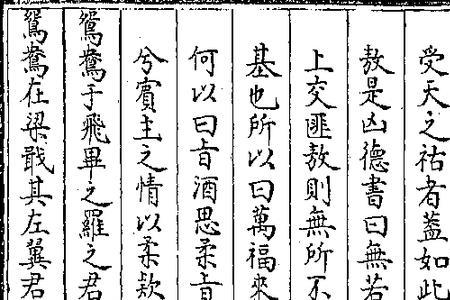 受天之祜者蓋如此
敖是凶德書曰無若
上交匪敖則無所不
基也所以曰萬福來
何以曰旨酒思柔旨
兮賓主之情以柔欵
鴛鴦于飛畢之羅之君
鴛鴦在梁戢其左翼君